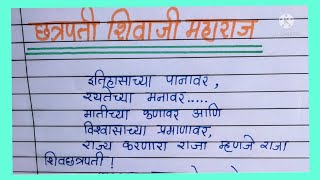 छत्रपती शिवाजी महाराज
इतिहासाच्या पानावर,
रयतेच्या मनावर.....
मातीच्या कणावर आणि
विश्वासाच्या प्रमाणावर,
राज्य करणारा राजा म्हणजे राजा
शिवछत्रपती !